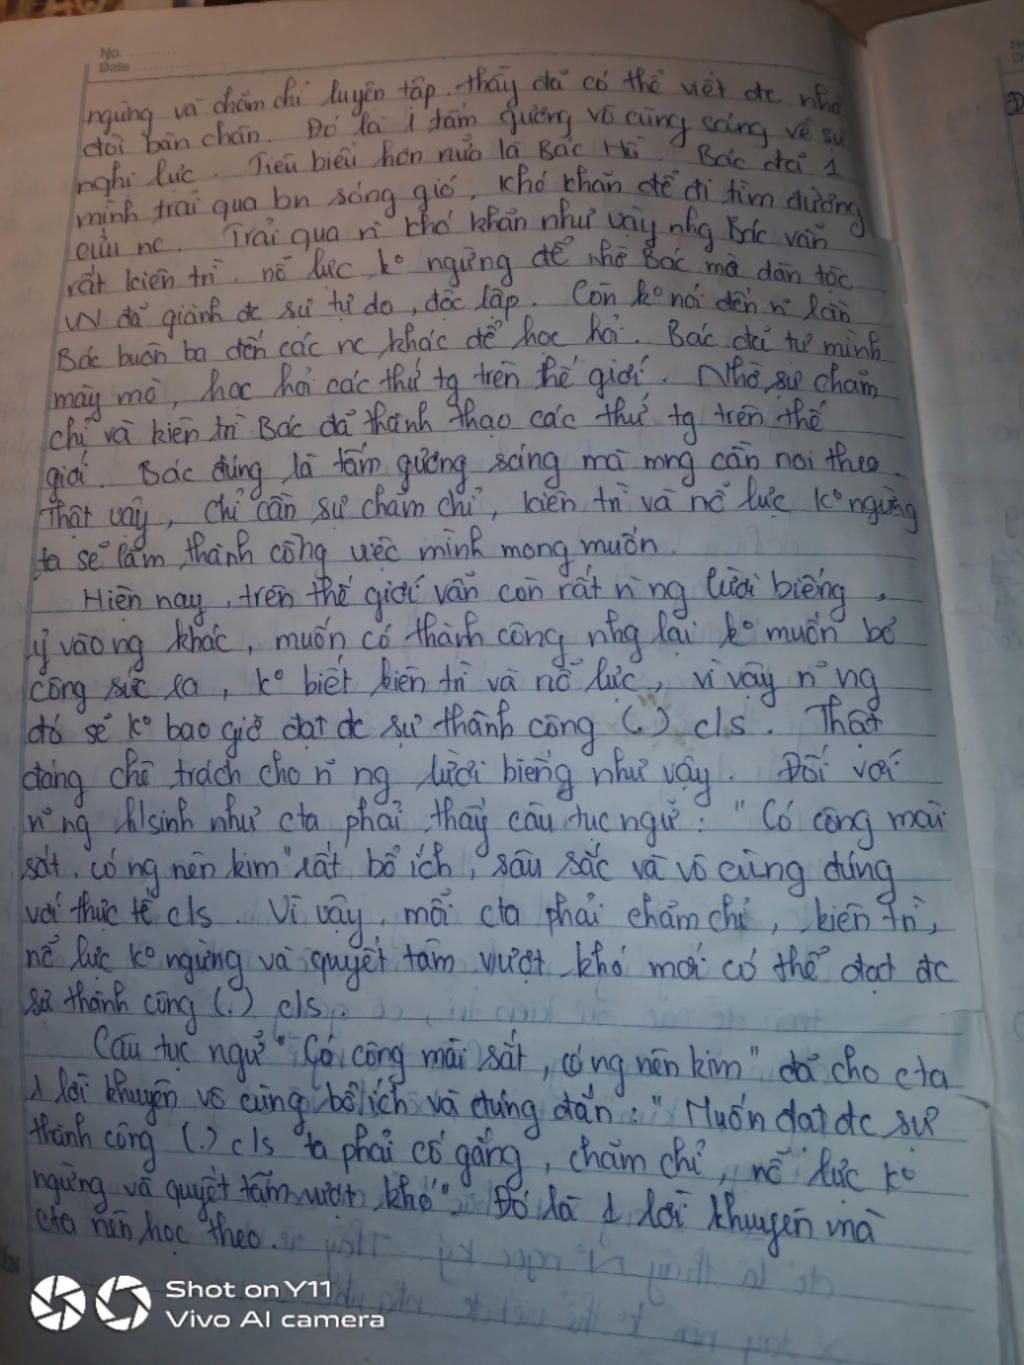 No.
Date
ngừng và chăm chỉ luyện tập. thầy đã có thể viết đc nhờ
đôi bàn chân. Đó là 1 tấm gương vô cùng sáng về sự
nghị lực. Tiêu biểu hơn nữa là Bác Hồ. Bác đã 1
mình trải qua bn sóng gió, khó khăn để đi tìm đường
cứu nc. Trải qua n~ khó khăn như vậy nhg Bác vẫn
rất kiên trì nỗ lực k° ngừng để nhờ Bác mà dân tộc
VN đã giành đc sự tự do, độc lập. Còn k° nói đến n~ lần
Bác buôn ba đến các nc khác để học hỏi. Bác đã tự mình
mày mò, học hỏi các thứ tg trên thế giới. Nhờ sự chăm
chỉ và kiên trì Bác đã thành thạo các thứ tg trên thế
giới. Bác đúng là tấm gương sáng mà mng cần noi theo.
Thật vậy, chỉ cần sự chăm chỉ, kiên trì và nỗ lực k° ngừng
ta sẽ làm thành công việc mình mong muốn.
Hiện nay, trên thế giới vẫn còn rất n~ ng lười biếng,
ỷ vào ng khác, muốn có thành công nhg lại k° muốn bỏ
công sức ra, k° biết kiên trì và nỗ lực, vì vậy n~ ng
đó sẽ k° bao giờ đạt đc sự thành công (.) c/s. Thật
đáng chê trách cho n~ ng lười biếng như vậy. Đối với
n~ ng h/sinh như cta phải thấy câu tục ngữ: "Có công mài
sắt, có ng nên kim" rất bổ ích, sâu sắc và vô cùng đúng
với thực tế c/s. Vì vậy, mỗi cta phải chăm chỉ, kiên trì,
nỗ lực k° ngừng và quyết tâm vượt khó mới có thể đạt đc
sự thành công (.) c/s.
Câu tục ngữ "Có công mài sắt, có ng nên kim" đã cho cta
1 lời khuyên vô cùng bổ ích và đúng đắn: "Muốn đạt đc sự
thành công (.) c/s ta phải cố gắng, chăm chỉ, nỗ lực k°
ngừng và quyết tâm vượt khó". Đó là 1 lời khuyên mà
cta nên học theo.
Shot on Y11
Vivo AI camera